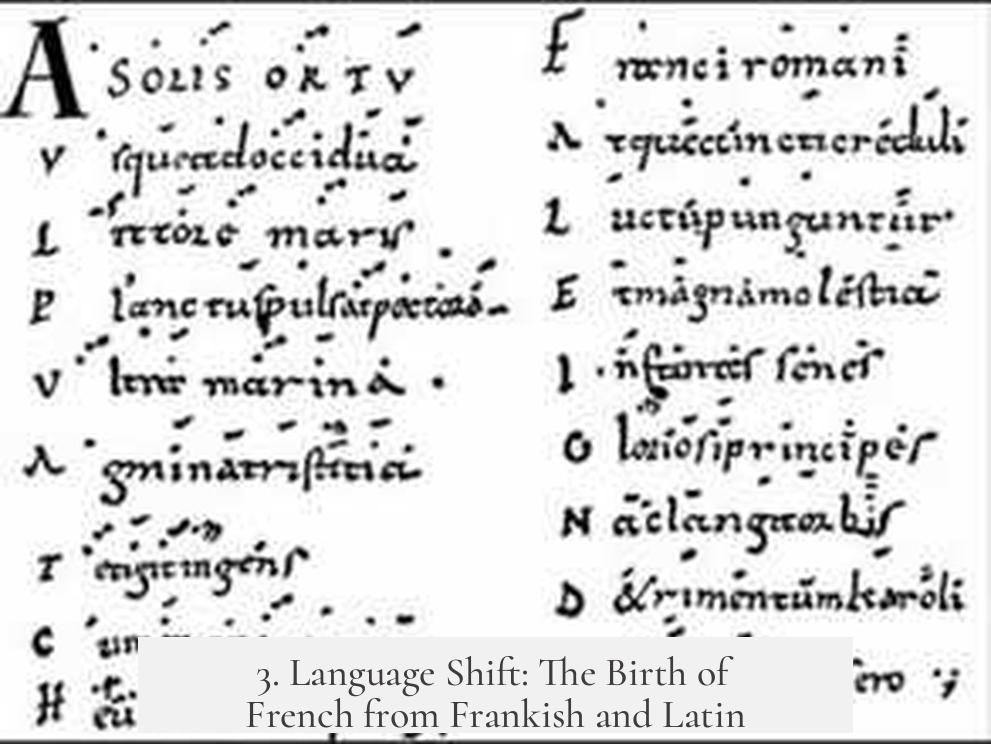 A SOLIS ORTV
V sque ad occidua
L ittore maris
P lanctus pulsat pectora
V ltre marina
A gmina tristitia
T etigit ingens
C um
H eu
F ranci romani
A tque cuncti creduli
L uctu punguntur
E t magna molestia
I nfantes senes
G loriosi principes
N a clangit orbis
D &rimentum karoli
ero ;
3. Language Shift: The Birth of
French from Frankish and Latin